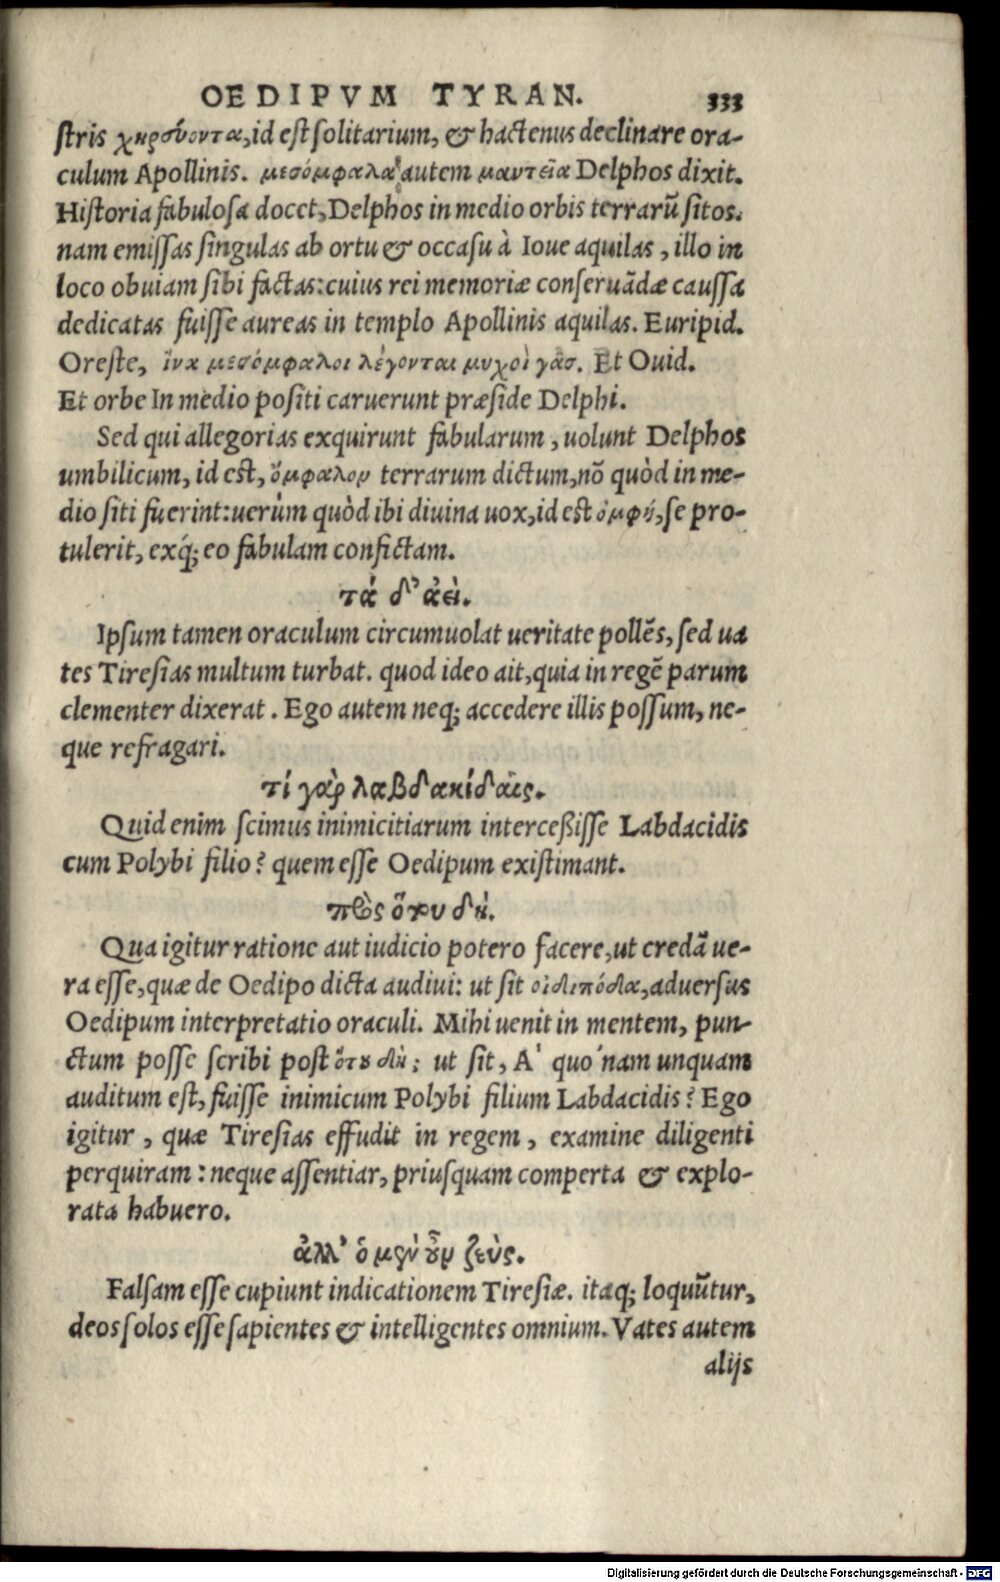 OEDIPVM TYRAN. 333
stris χηρεύοντα, id est solitarium, & hactenus declinare ora-
culum Apollinis. μεσόμφαλα autem μαντεῖα Delphos dixit.
Historia fabulosa docet, Delphos in medio orbis terrarū sitos.
nam emissas singulas ab ortu & occasu à Ioue aquilas, illo in
loco obuiam sibi factas: cuius rei memoriæ conseruādæ caussa
dedicatas fuisse aureas in templo Apollinis aquilas. Euripid.
Oreste, ἵνα μεσόμφαλοι λέγονται μυχοὶ γᾶσ. Et Ouid.
Et orbe In medio positi caruerunt præside Delphi.
Sed qui allegorias exquirunt fabularum, uolunt Delphos
umbilicum, id est, ὄμφαλον terrarum dictum, nō quòd in me-
dio siti fuerint: uerùm quòd ibi diuina uox, id est ὀμφή, se pro-
tulerit, exq́; eo fabulam confictam.
τά δ' ἀεὶ.
Ipsum tamen oraculum circumuolat ueritate pollēs, sed ua
tes Tiresias multum turbat. quod ideo ait, quia in regē parum
clementer dixerat. Ego autem neq; accedere illis possum, ne-
que refragari.
τί γὰρ λαβδακίδαις.
Quid enim scimus inimicitiarum interceßisse Labdacidis
cum Polybi filio? quem esse Oedipum existimant.
πρὸς ὅτου δή.
Qua igitur ratione aut iudicio potero facere, ut credā ue-
ra esse, quæ de Oedipo dicta audiui: ut sit οἰδιπόδα, aduersus
Oedipum interpretatio oraculi. Mihi uenit in mentem, pun-
ctum posse scribi post ὅτου δὴ; ut sit, A' quo'nam unquam
auditum est, fuisse inimicum Polybi filium Labdacidis? Ego
igitur, quæ Tiresias effudit in regem, examine diligenti
perquiram: neque assentiar, priusquam comperta & explo-
rata habuero.
ἀλλ' ὁ μὲν οὖν ζεὺς.
Falsam esse cupiunt indicationem Tiresiæ. itaq; loquūtur,
deos solos esse sapientes & intelligentes omnium. Vates autem
alijs
Digitalisierung gefördert durch die Deutsche Forschungsgemeinschaft - DFG